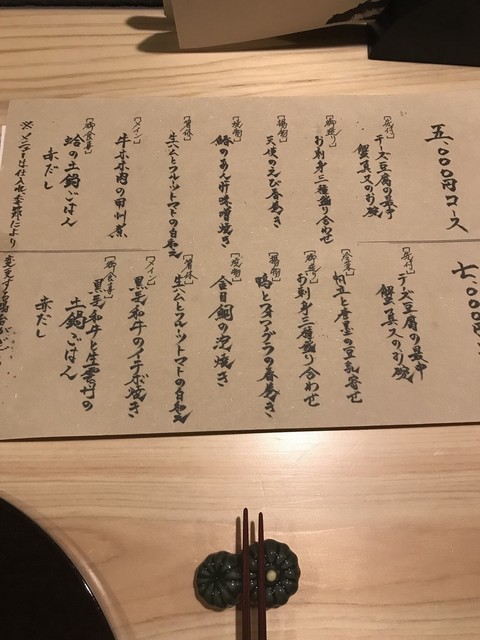 五、〇〇〇円コース
【先付】
チーズ豆腐の最中
蟹真丈のお椀
【御造り】
お刺身三種盛り合わせ
【揚物】
天使のえび春巻き
【焼物】
鰆のあん肝味噌焼き
【箸休】
生ハムとフルーツトマトの白和え
【メイン】
牛ホホ肉の甲州煮
【御食事】
蛤の土鍋ごはん
赤だし
※メニューは仕入れ状況により
七、〇〇〇円
【先付】
チーズ豆腐の最中
蟹真丈のお椀
【前菜】
帆立と雲丹の豆乳寄せ
【御造り】
お刺身三種盛り合わせ
【揚物】
鴨とフォアグラの春巻き
【焼物】
金目鯛の
焼き
【箸休】
生ハムとフルーツトマトの白和え
【メイン】
黒毛和牛のイチボ焼き
【御食事】
黒毛和牛と生雲丹の
土鍋ごはん
赤だし
変更する場合